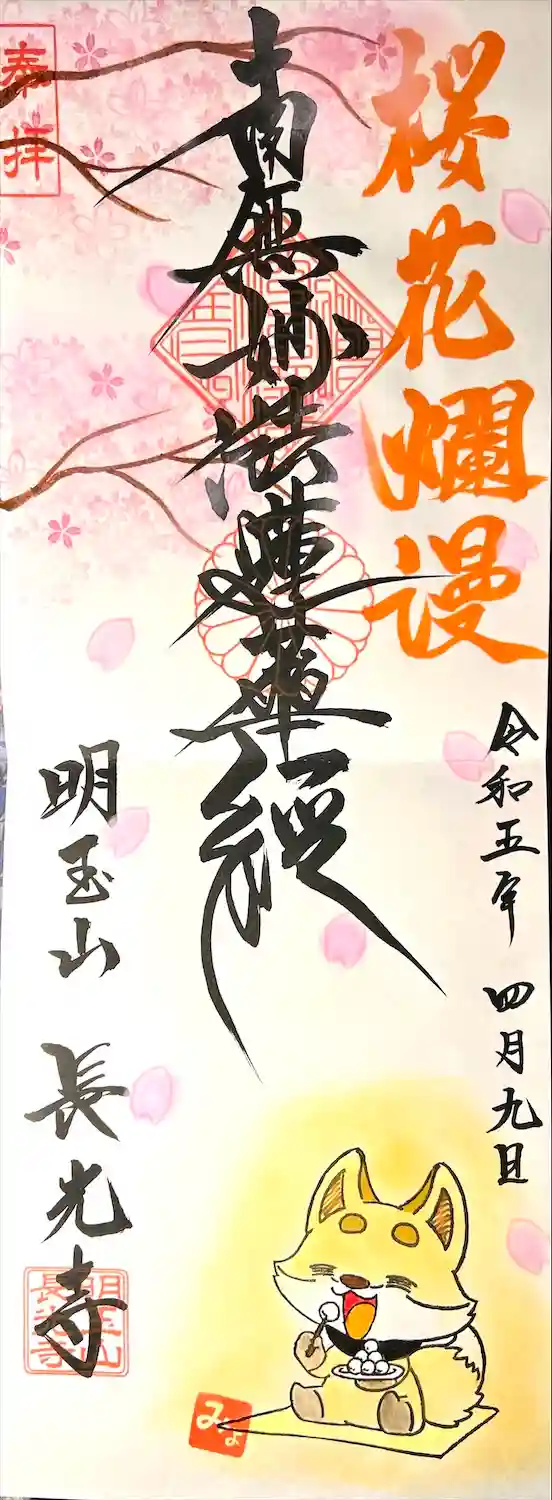 桜花爛漫
令和五年 四月九日
南無妙法蓮華経
奉拝
明玉山 長光寺
明玉山
長光寺
みよ